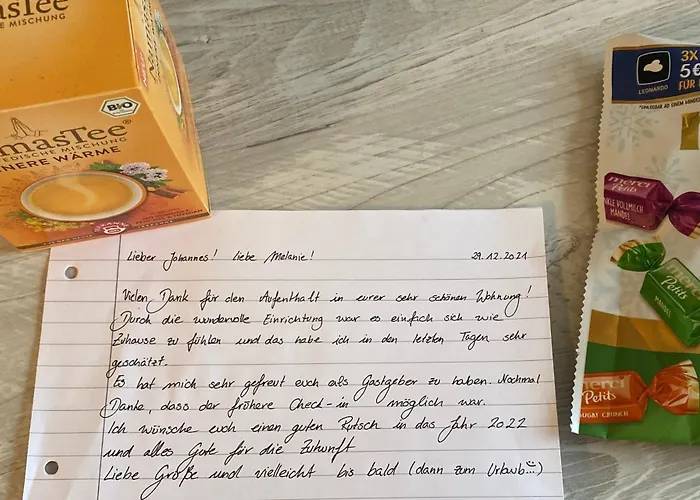 masTee
E MISCHUNG
BIO
masTee®
EDISCHE MISCHUNG
NNERE WÄRME
Lieber Johannes! Liebe Melanie! 29.12.2021
Vielen Dank für den Aufenthalt in eurer sehr schönen Wohnung!
Durch die wundervolle Einrichtung war es einfach sich wie
Zuhause zu fühlen und das habe ich in den letzten Tagen sehr
geschätzt.
Es hat mich sehr gefreut euch als Gastgeber zu haben. Nochmal
Danke, dass der frühere Check-in möglich war.
Ich wünsche euch einen guten Rutsch in das Jahr 2022
und alles Gute für die Zukunft
Liebe Grüße und vielleicht bis bald (dann zum Urlaub...)
3X
5€
FÜR
LEONARDO
merci
Petits
NKLE VOLLMILCH
MANDEL
merci
Petits
MANDEL
merci
Petits
NOUGAT CRUNCH